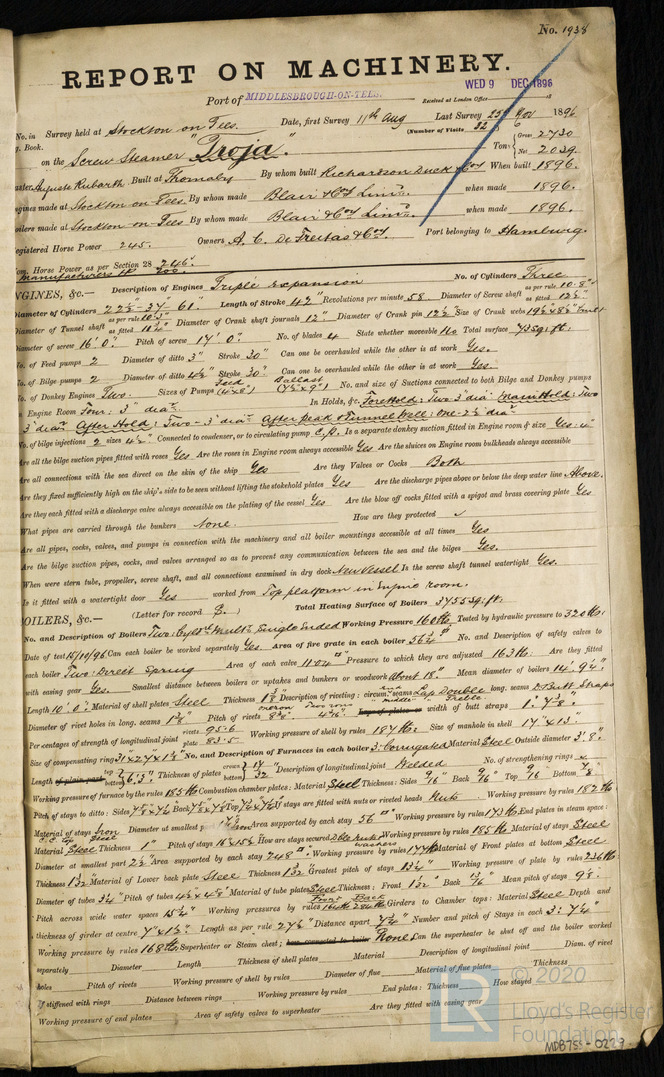 No. 1938
REPORT ON MACHINERY.
Port of MIDDLESBROUGH-ON-TEES. Received at London Office WED 9 DEC 1896 18
No. in Survey held at Stockton on Tees. Date, first Survey 11th Aug Last Survey 25th Nov 1896
Book. (Number of Visits 32)
on the Screw Steamer "Troja." Tons Gross 2730 Net 2039
Master Auguste Kubarth Built at Thornaby By whom built Richardson Duck & Coy When built 1896.
Engines made at Stockton on Tees By whom made Blair & Coy Limd. when made 1896.
Boilers made at Stockton-on-Tees By whom made Blair & Coy Limd. when made 1896.
Registered Horse Power 245. Owners A. C. De Freitas & Coy. Port belonging to Hamburg.
Nom. Horse Power as per Section 28 246.
Manufacturers HP 200.
ENGINES, &c.— Description of Engines Triple Expansion No. of Cylinders Three
Diameter of Cylinders 22½-37-61" Length of Stroke 42" Revolutions per minute 58. Diameter of Screw shaft as per rule 10.8" as fitted 12½"
Diameter of Tunnel shaft as per rule 10.3" as fitted 11½" Diameter of Crank shaft journals 12" Diameter of Crank pin 12½" Size of Crank webs 19½ x 8½"
Diameter of screw 16'0" Pitch of screw 17'0" No. of blades 4 State whether moveable No Total surface 73 sq. ft.
No. of Feed pumps 2 Diameter of ditto 3" Stroke 30" Can one be overhauled while the other is at work Yes.
No. of Bilge pumps 2 Diameter of ditto 4½" Stroke 30" Can one be overhauled while the other is at work Yes.
No. of Donkey Engines Two. Sizes of Pumps Feed (4 x 8") Ballast (7½ x 9") No. and size of Suctions connected to both Bilge and Donkey pumps
In Engine Room Four: 3" diar. In Holds, &c. Fore Hold: Two 3" dia: Main Hold: Two
3" dia: After Hold: Two - 3" dia: After peak & Tunnel Well: One - 2½" dia
No. of bilge injections 2 sizes 4½" Connected to condenser, or to circulating pump C.P. Is a separate donkey suction fitted in Engine room & size Yes: 4"
Are all the bilge suction pipes fitted with roses Yes Are the roses in Engine room always accessible Yes Are the sluices on Engine room bulkheads always accessible
Are all connections with the sea direct on the skin of the ship Yes Are they Valves or Cocks Both
Are they fixed sufficiently high on the ship's side to be seen without lifting the stokehold plates Yes Are the discharge pipes above or below the deep water line Above.
Are they each fitted with a discharge valve always accessible on the plating of the vessel Yes Are the blow off cocks fitted with a spigot and brass covering plate Yes
What pipes are carried through the bunkers None. How are they protected ✓
Are all pipes, cocks, valves, and pumps in connection with the machinery and all boiler mountings accessible at all times Yes
Are the bilge suction pipes, cocks, and valves arranged so as to prevent any communication between the sea and the bilges Yes.
When were stern tube, propeller, screw shaft, and all connections examined in dry dock New Vessel Is the screw shaft tunnel watertight Yes.
Is it fitted with a watertight door Yes worked from Top platform in Engine room.
BOILERS, &c.— (Letter for record S.) Total Heating Surface of Boilers 3755 sq. ft.
No. and Description of Boilers Two: Cyldl Multr Single Ended Working Pressure 160 lbs. Tested by hydraulic pressure to 320 lbs:
Date of test 15/10/96 Can each boiler be worked separately Yes. Area of fire grate in each boiler 56¼" No. and Description of safety valves to
each boiler Two: Direct Spring Area of each valve 11.04" Pressure to which they are adjusted 163 lbs: Are they fitted
with easing gear Yes. Smallest distance between boilers or uptakes and bunkers or woodwork About 18". Mean diameter of boilers 14' 9¼".
Length 10' 0" Material of shell plates Steel Thickness 1⅛" Description of riveting: circum. seams Lap Double long. seams D. Butt Straps
Diameter of rivet holes in long. seams 1⅛" Pitch of rivets 8⅜" width of butt straps 1' 7⅛".
Per centages of strength of longitudinal joint rivets 95.6 plate 83.5 Working pressure of shell by rules 187 lbs. Size of manhole in shell 17" x 13".
Size of compensating ring 31" x 27" x 1⅛" No. and Description of Furnaces in each boiler 3: Corrugated Material Steel Outside diameter 3' 8".
Length of plain part top bottom 6'.3" Thickness of plates crown bottom 17/32 Description of longitudinal joint Welded No. of strengthening rings ✓
Working pressure of furnace by the rules 185 lbs Combustion chamber plates: Material Steel Thickness: Sides 9/16" Back 9/16" Top 9/16 Bottom ⅞"
Pitch of stays to ditto: Sides 7⅝ x 7⅝ Back 7⅝ x 7⅝ Top 7¼ x 7½ If stays are fitted with nuts or riveted heads Nuts Working pressure by rules 182 lbs
Material of stays Iron Diameter at smallest part 1¼" Area supported by each stay 56" Working pressure by rules 173 lbs. End plates in steam space:
Material Steel Thickness 1" Pitch of stays 16 x 15½" How are stays secured Dble nuts & washers Working pressure by rules 185 lbs Material of stays Steel
Diameter at smallest part 2½" Area supported by each stay 248" Working pressure by rules 174 lbs Material of Front plates at bottom Steel
Thickness 1 1/32 Material of Lower back plate Steel Thickness 1 3/32 Greatest pitch of stays 13¼" Working pressure of plate by rules 236 lbs
Diameter of tubes 3¼" Pitch of tubes 4½ x 4⅜ Material of tube plates Steel Thickness: Front 1 1/32 Back 13/16" Mean pitch of stays 9⅛.
Pitch across wide water spaces 15¼" Working pressures by rules Front 164 lbs Back 284 lbs Girders to Chamber tops: Material Steel Depth and
thickness of girder at centre 7" x 1½" Length as per rule 27½" Distance apart 7¾" Number and pitch of Stays in each 3: 7¼"
Working pressure by rules 168 lbs. Superheater or Steam chest; how connected to boiler None Can the superheater be shut off and the boiler worked
separately Diameter Length Thickness of shell plates Material Description of longitudinal joint Diam. of rivet
holes Pitch of rivets Working pressure of shell by rules Diameter of flue Material of flue plates Thickness
If stiffened with rings Distance between rings Working pressure by rules End plates: Thickness How stayed
Working pressure of end plates Area of safety valves to superheater Are they fitted with easing gear
LR © 2020
Lloyd's Register
Foundation
MDB755-0229